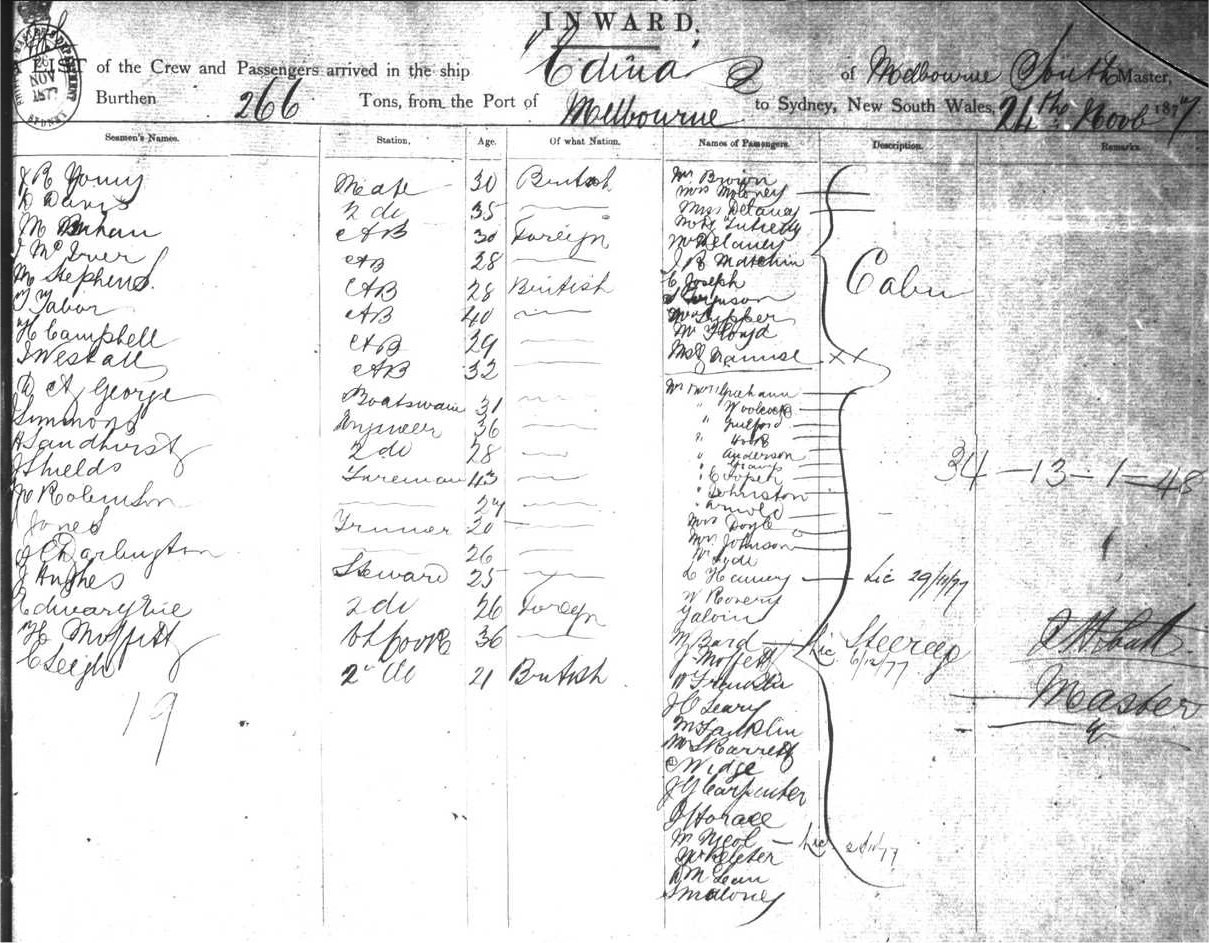 INWARD,
LIST of the Crew and Passengers arrived in the ship Edina of Melbourne South Master,
Burthen 266 Tons, from the Port of Melbourne to Sydney, New South Wales, 24th Novb 1877
26 NOV 1877
SYDNEY
Seamen's Names. Station, Age. Of what Nation. Names of Passengers. Description. Remarks.
J R Young Mate 30 British
D Davis 2 do 35
M AB 30 Foreign
J McIver AB 28
M Stephens AB 28 British
T Tabor AB 40
H Campbell AB 29
T Westall AB 32
D A George Boatswain 31
Simmons Engineer 36
H Sandhurst 2 do 28
J Shields Fireman 43
W Robinson 24
Jones Trimmer 20
J C Darlington 26
J Hughes Steward 25
2 do 26 Foreign
H Moffitt Ch Cook 36
C Leigh 2 do 21 British
19
Mr Brown
Mrs Moloney
Miss Delaney
Mr Delaney
J R Matchin
C Joseph
S Ferguson
Mrs Tupper
Mr Floyd
Cabin
Mr Mrs Graham
" Woolcock
" Guilford
" Hook
" Anderson
" Grant
" Cooper
" Johnston
" Arnold
Mrs Doyle
Mrs Johnson
Mr Hyde
L Henney Lic 29/11/77
W Rovery
Galvin
M Bard Lic 6/12/77
Steerage
J Moffett
J C Leary
M Lanklin
Mr S Barrett
C Widge
J G Carpenter
J Horace
M Nicol Lic
W Keleher
D McLean
S Maloney
34 - 13 - 1 - 48
Master